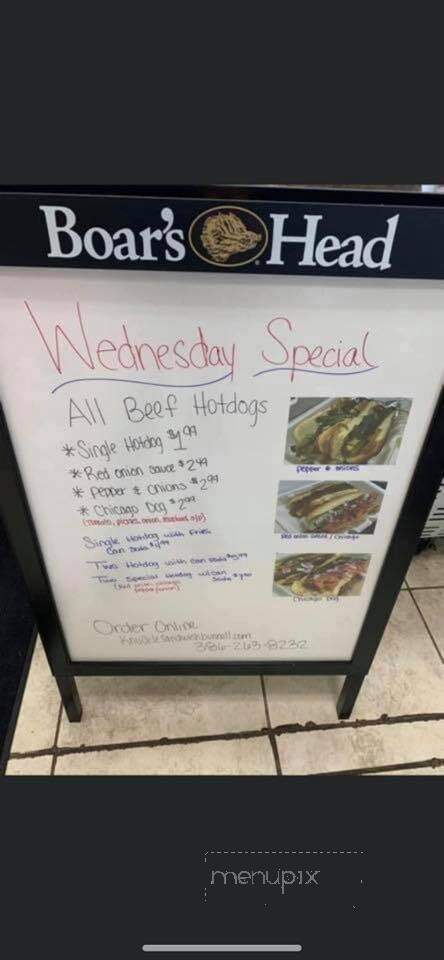 Boar's Head
Wednesday Special
All Beef Hotdogs
* Single Hotdog $1.99
* Red onion sauce $2.49
* Pepper & onions $2.99
* Chicago Dog $2.99
(tomato, pickles, onion, mustard, s/p)
Pepper & onions
Single Hotdog with Fries
Can Soda
Red onion sauce / Chicago
Two Hotdog with can soda
Two Special Hotdog w/can
Soda
Chicago Dog
Order Online
Knucklesandwichbunnell.com
386-263-8232
menupix